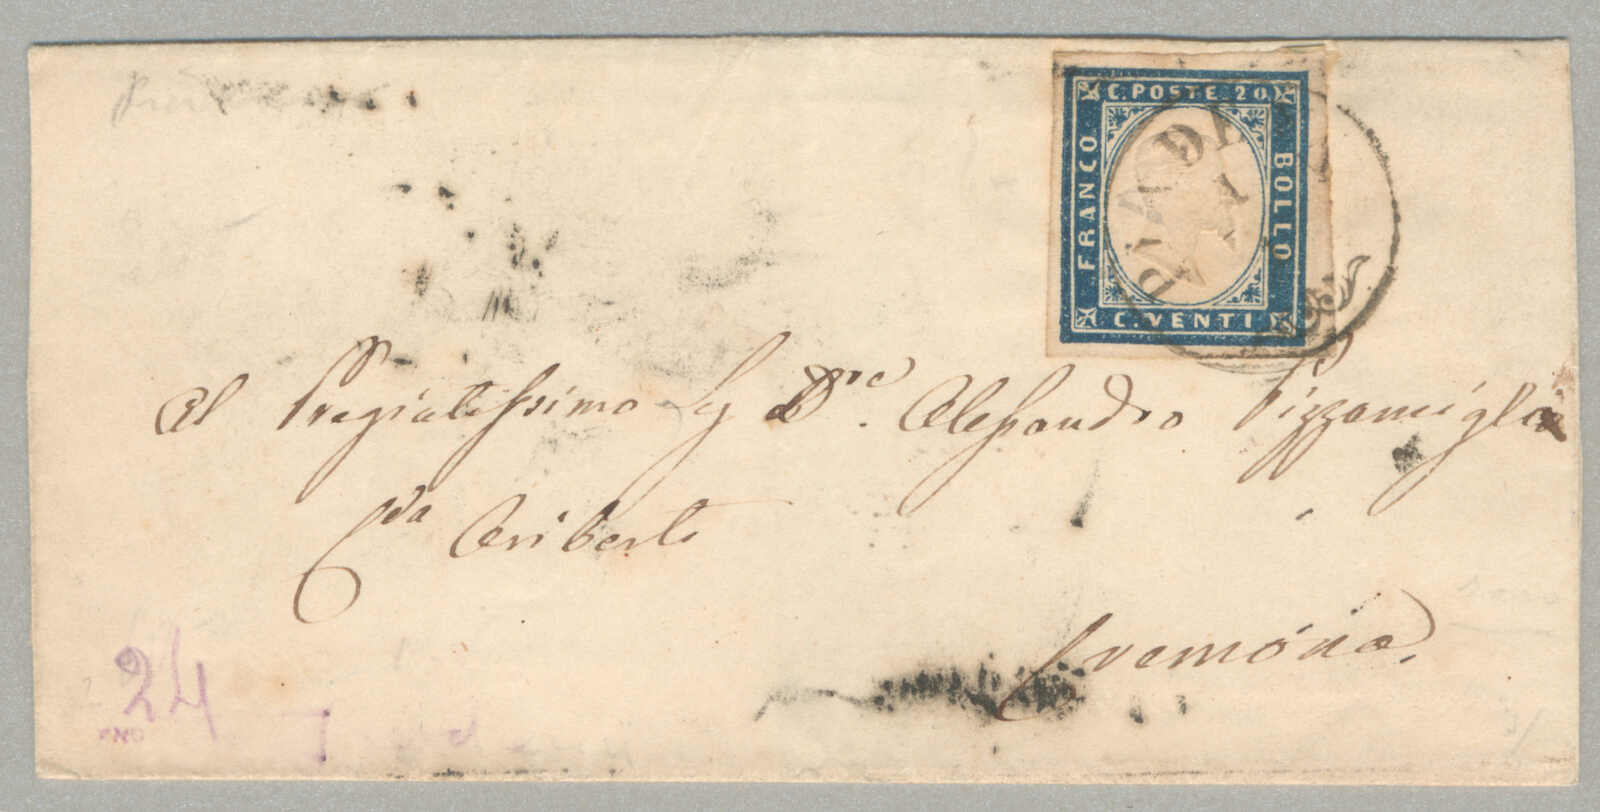 C. POSTE 20
FRANCO
BOLLO
C. VENTI
PIADE
1
Al Pregiatissimo Sig Dre. Alessandro Pizzamiglio
Cda Ariberti
Cremona.
24